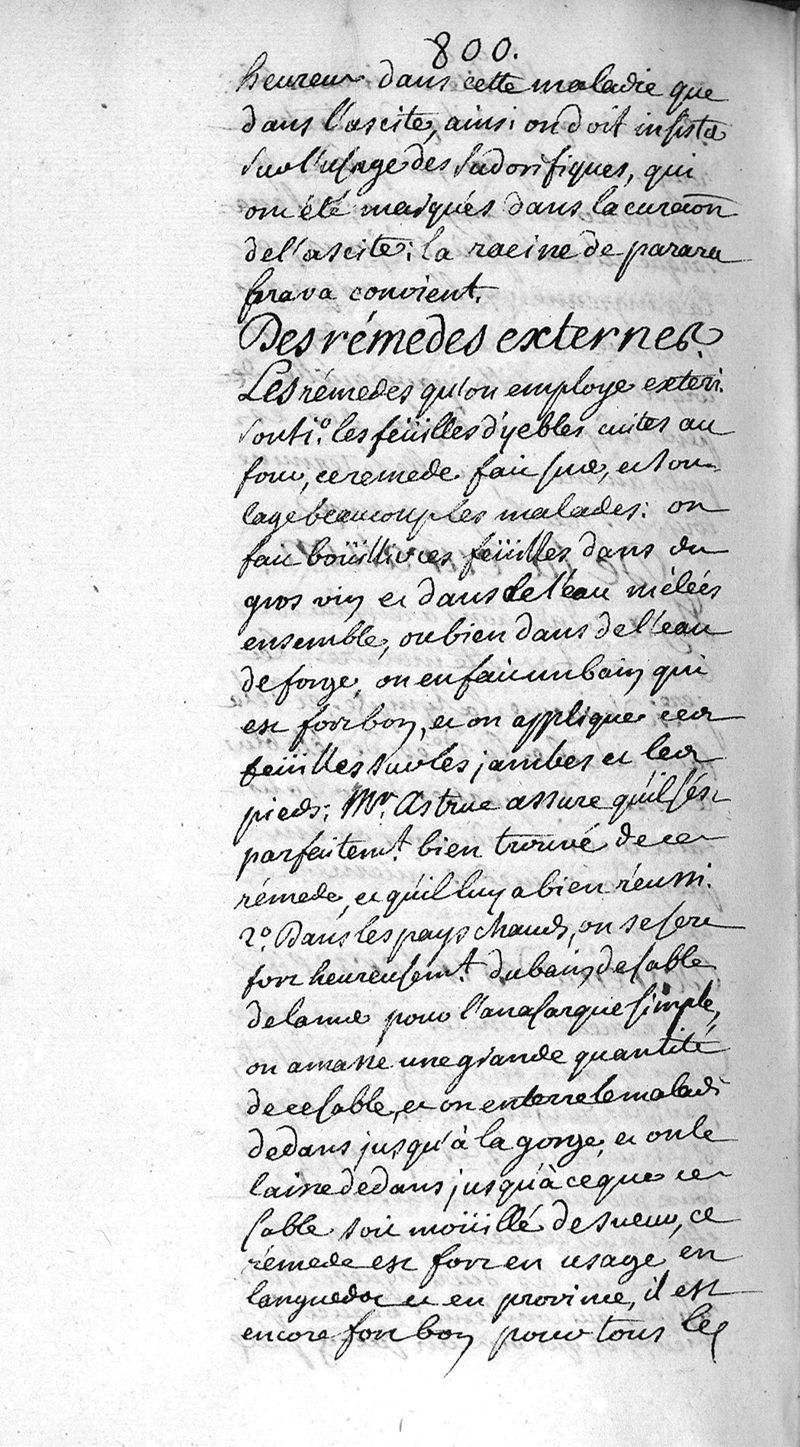 800.
heureux dans cette maladie que
dans l'ascite, ainsi on doit insister
sur l'usage des sudorifiques, qui
ont été marqués dans la curaõn
de l'ascite; la racine de parara
brava convient.
Des rémedes externes.
Les rémedes qu'on employe exteri.
sont 1.° les feüilles d'yebles cuites au
four, ce remede fait suer, et sou-
lage beaucoup les malades: on
fait boüillir ces feüilles dans du
gros vin et dans de l'eau mélées
ensemble, ou bien dans de l'eau
de forge, on en fait un bain qui
est fort bon, et on applique ces
feüilles sur les jambes et les
pieds; Mr. Astruc assure qu'il s'ést
parfaitemt. bien trouvé de ce
rémede, et qu'il luy a bien réussi.
2.° Dans les pays chauds, on se sert
fort heureusemt. du bain de sable
de la mer pour l'anasarque simple,
on amasse une grande quantité
de ce sable, et on enterre le maladé
dedans jusqu'à la gorge, et on le
laisse dedans jusqu'à ce que ce
sable soit moüillé de sueur, ce
rémede est fort en usage en
languedoc et en province, il est
encore fort bon pour tous les